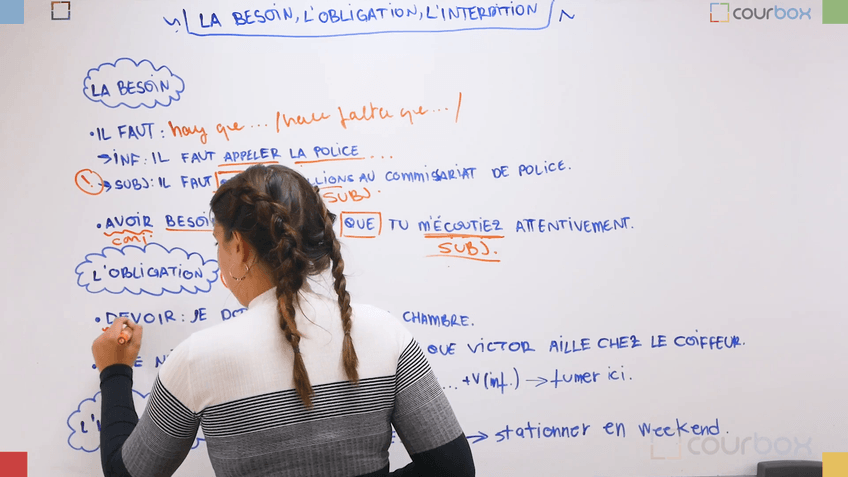 LA BESOIN, L'OBLIGATION, L'INTERDITION
courbox
LA BESOIN
• IL FAUT : hay que ... / hace falta que ... /
→ INF : IL FAUT APPELER LA POLICE ...
! → SUBJ : IL FAUT LLIONS AU COMMISSARIAT DE POLICE.
SUBJ.
• AVOIR BESOIN QUE TU M'ÉCOUTIEZ ATTENTIVEMENT.
conj.
SUBJ.
L'OBLIGATION
• DEVOIR : JE DO CHAMBRE.
• QUE VICTOR AILLE CHEZ LE COIFFEUR.
... + V (inf.) → fumer ici.
L'I
→ stationner en weekend.
courbox